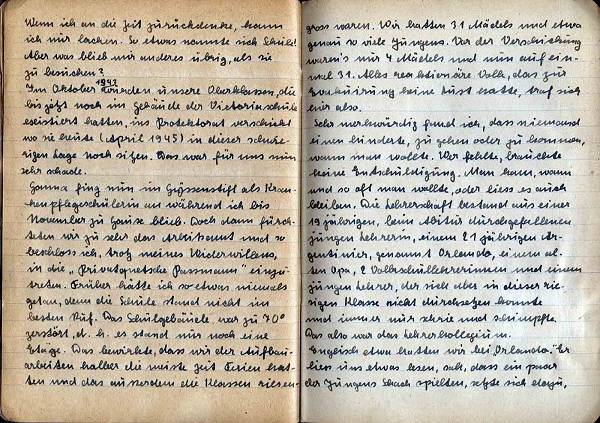 Wenn ich an die Zeit zurückdenke, kann
ich nur lachen. So etwas nannte sich Schule!
Aber was blieb mir anderes übrig, als sie
zu besuchen?
1943
Im Oktober wurden unsere Oberklassen, die
bis jetzt noch im Gebäude der Victoriaschule
existiert hatten, ins Protektorat verschickt
wo sie heute (April 1945) in dieser schwie-
rigen Lage noch sitzen. Das war für uns nun
sehr schade.
Hanna fing nun im Hyssenstift als Kran-
kenpflegeschülerin an während ich bis
November zu Hause blieb. Doch dann fürch-
teten wir zu sehr das Arbeitsamt und so
beschloss ich, trotz meines Widerwillens,
in die "Privatquetsche Passmann" einzu-
treten. Früher hätte ich so etwas niemals
getan, denn die Schule stand nicht im
besten Ruf. Das Schulgebäude war zu 70%
zerstört, d. h. es stand nur noch eine
Etage. Das bewirkte, dass wir der Aufbau-
arbeiten halber die meiste Zeit Ferien hat-
ten und das ausserdem die Klassen riesen-
gross waren. Wir hatten 31 Mädels und etwa
genau so viele Jungens. Vor der Verschickung
waren's nur 4 Mädels und nun auf ein-
mal 31. Alles reaktionäre Volk, das zur
Evakuierung keine Lust hatte, traf sich
hier also.
Sehr merkwürdig fand ich, dass niemand
einen hinderte, zu gehen oder zu kommen,
wann man wollte. Wer fehlte, brauchte
keine Entschuldigung. Man kam, wann
und so oft man wollte, oder liess es auch
bleiben. Die Lehrerschaft bestand aus einer
19 jährigen, beim Abitur durchgefallenen
jungen Lehrerin, einem 21 jährigen Ar-
gentinier, genannt Orlando, einem al-
ten Opa, 2 Volksschullehrerinnen und einem
jungen Lehrer, der sich aber in dieser rie-
sigen Klasse nicht durchsetzen konnte
und immer nur schrie und schimpfte
Das also war das Lehrerkollegium.
Englisch etwa hatten wir bei "Orlando". Er
liess uns etwas lesen, sah, dass ein paar
der Jungens Schach spielten, setzte sich dazu,